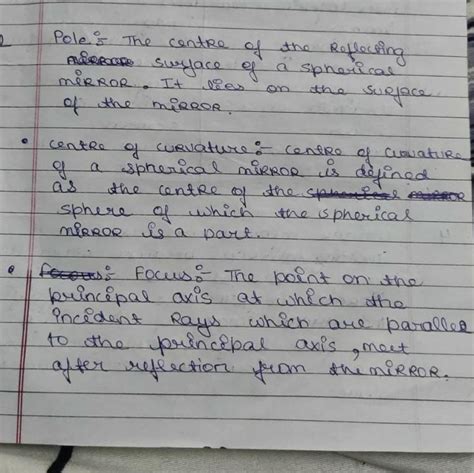 Pole:- The centre of the Reflecting
surface of a spherical
MIRROR. It lies on the surface
of the MIRROR.
• centre of curvature:- centre of curvature
of a spherical MIRROR is defined
as the centre of the spherical mirror
sphere of which the spherical
MIRROR is a part.
• Focus:- Focus:- The point on the
principal axis at which the
incident Rays which are parallel
to the principal axis, meet
after reflection from the MIRROR.